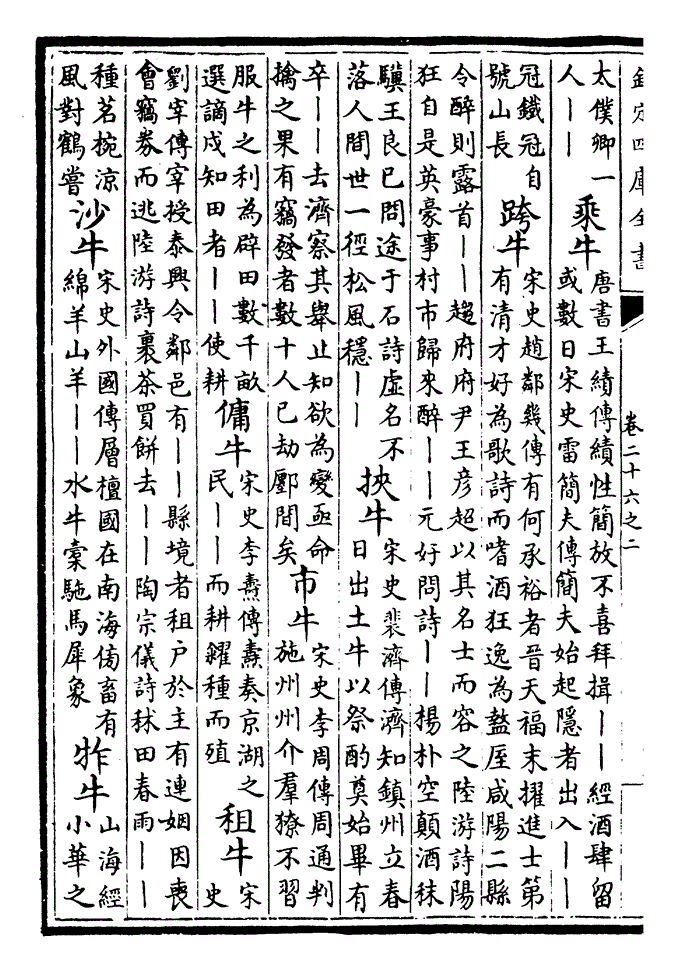 欽定四庫全書
卷二十六之二
太僕卿一
人｜｜
乘牛
唐書王績傳績性簡放不喜拜揖｜｜經酒肆留
或數日宋史雷簡夫傳簡夫始起隱者出入｜｜
冠鐵冠自
號山長
跨牛
宋史趙鄰幾傳有何承裕者晉天福末擢進士第
有清才好為歌詩而嗜酒狂逸為盩厔咸陽二縣
令醉則露首｜｜趨府府尹王彥超以其名士而容之陸游詩陽
狂自是英豪事村市歸來醉｜｜元好問詩｜｜楊朴空顛酒秣
驥王良已問途于石詩虛名不
落人間世一徑松風穩｜｜
挾牛
宋史裴濟傳濟知鎮州立春
日出土牛以祭酌奠始畢有
卒｜｜去濟察其舉止知欲為變亟命
擒之果有竊發者數十人已劫鄽間矣
市牛
宋史李周傳周通判
施州州介羣獠不習
服牛之利為辟田數千畝
選謫戍知田者｜｜使耕
傭牛
宋史李燾傳燾奏京湖之
民｜｜而耕糴種而殖
租牛
宋
史
劉宰傳宰授泰興令鄰邑有｜｜縣境者租户於主有連姻因喪
會竊劵而逃陸游詩裹茶買餅去｜｜陶宗儀詩秫田春雨｜｜
種茗椀涼
風對鶴嘗
沙牛
宋史外國傳層檀國在南海傍畜有
綿羊山羊｜｜水牛橐駞馬犀象
㸲牛
山海經
小華之